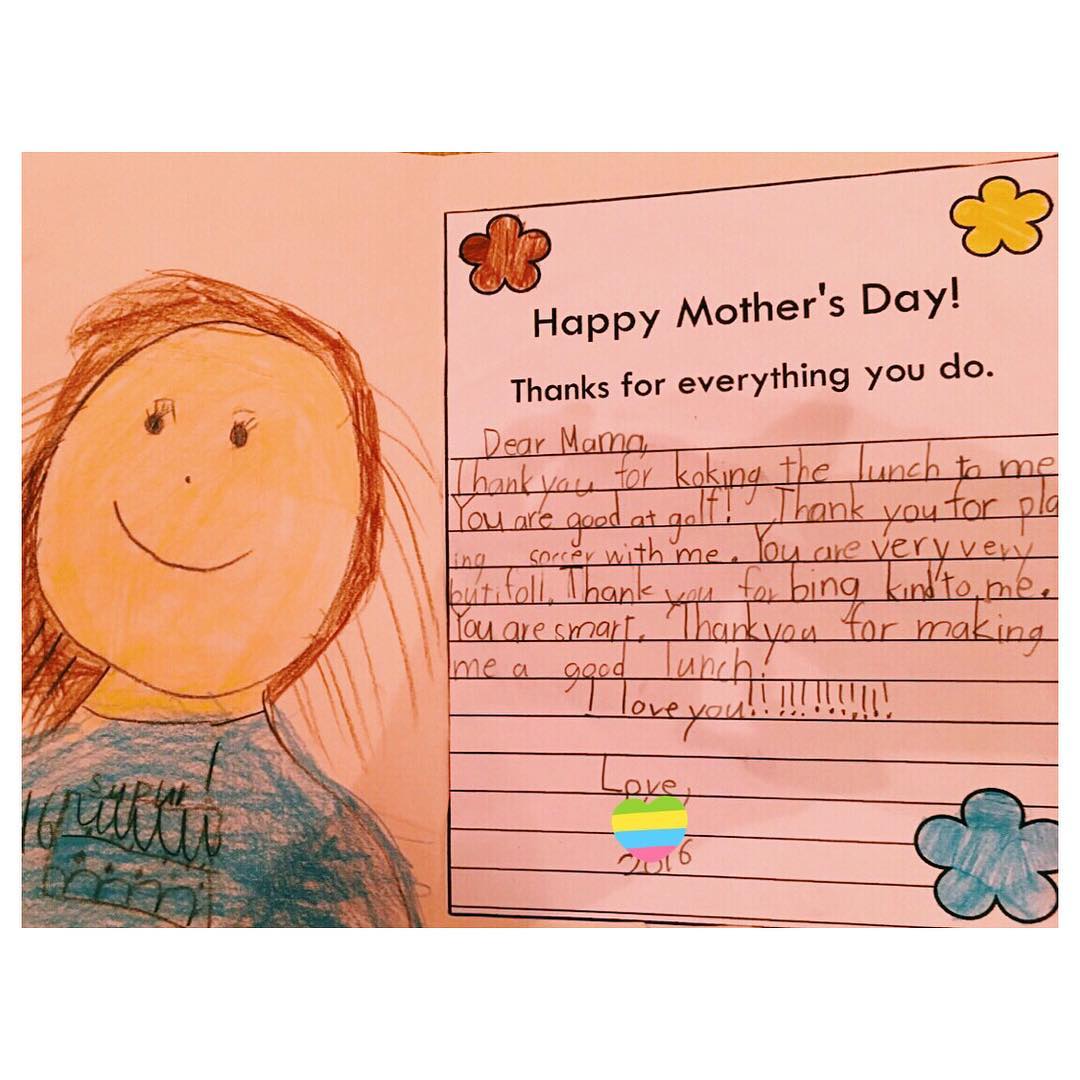 Happy Mother's Day!
Thanks for everything you do.
Dear Mama,
Thank you for koking the lunch to me
You are good at golf! Thank you for pla
ing soccer with me. You are very very
butifoll. Thank you for bing kind to me.
You are smart. Thank you for making
me a good lunch!
I love you!!!!!!!!!!!
Love,
2016
super